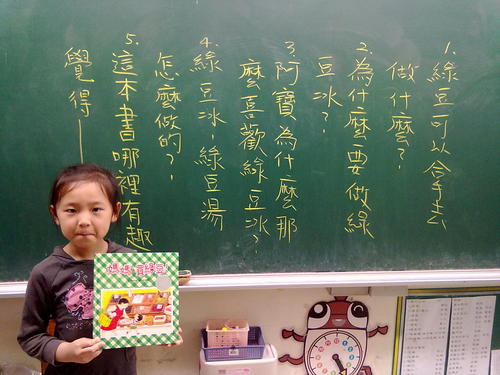 1. 綠豆可以拿去
做什麼?
2. 為什麼要做綠
豆冰?
3. 阿寶為什麼那
麼喜歡綠豆冰?
4. 綠豆冰、綠豆湯
怎麼做的?
5. 這本書哪裡有趣
覺得—
媽媽,買綠豆!